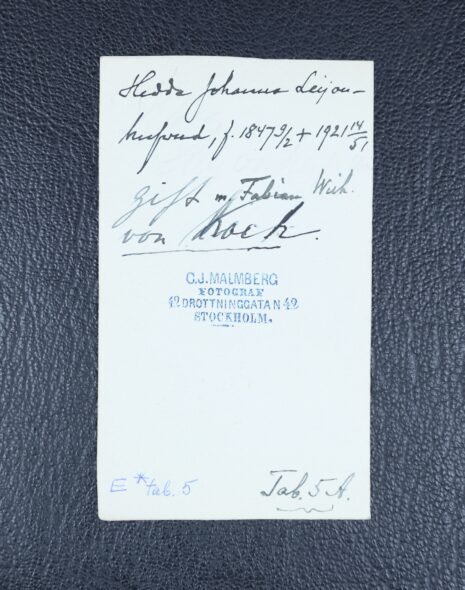 Hedda Johanna Leijon-
hufvud, f. 1847 9/2 + 1921 14/51
gift m Fabian Wilh.
von Koch.
C.J. MALMBERG
FOTOGRAF
42 DROTTNINGGATAN 42
STOCKHOLM.
E * tab. 5
Tab. 5 A.